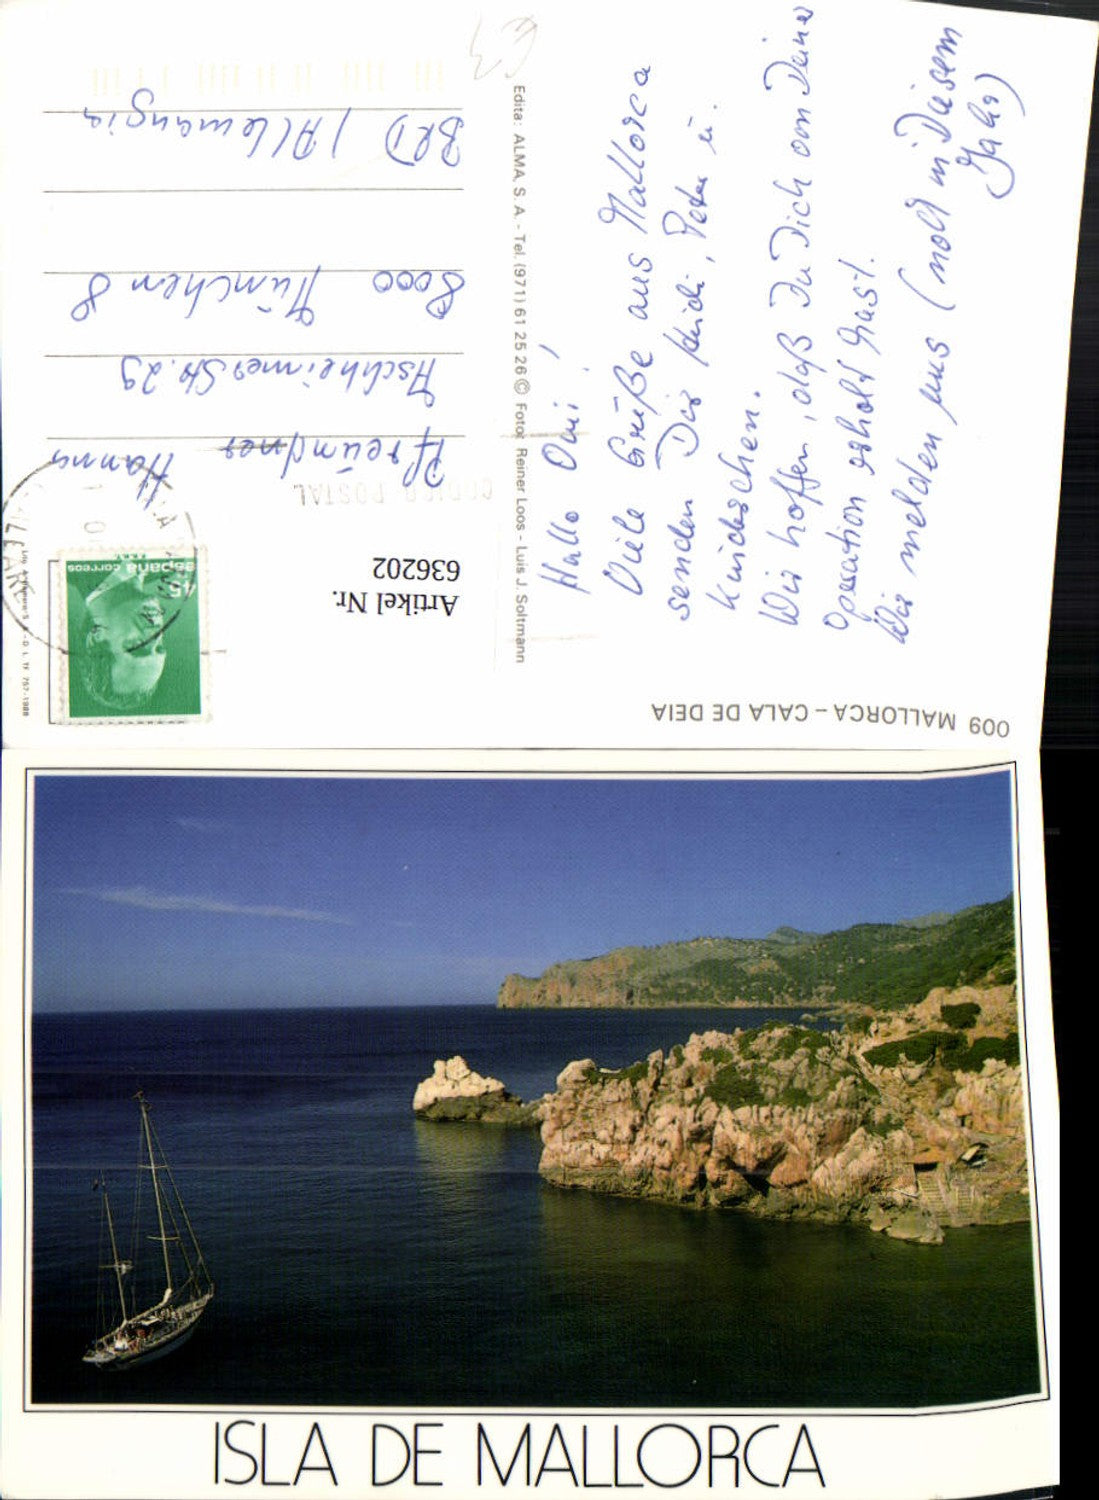 009 MALLORCA – CALA DE DEIA
Hallo Omi!
Viele Grüße aus Mallorca
senden Dir Heidi, Peter u.
Kinderchen.
Wir hoffen, daß Du Dich von Deiner
Operation erholt hast.
Wir melden uns (noch in Diesem
Jahr)
Edita: ALMA, S. A. - Tel. (971) 61 25 26 © Foto: Reiner Loos - Luis J. Soltmann
Artikel Nr.
636202
45
españa correos
CODIGO POSTAL
Hanna
Aschheimer Str. 29
8000 München 8
BRD (Allemania
ISLA DE MALLORCA